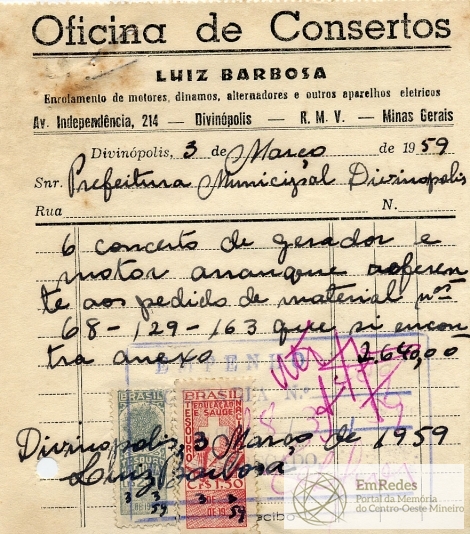 Oficina de Consertos
LUIZ BARBOSA
Enrolamento de motores, dinamos, alternadores e outros aparelhos eletricos
Av. Independência, 214 — Divinópolis — R. M. V. — Minas Gerais
Divinópolis, 3 de Março de 1959
Snr. Prefeitura Municipal Divinopolis
Rua N.
6 concerto de gerador e
motor arranque referen
te aos pedido de material nos
68-129-163 que si encon
tra anexo 2640,00
EMPENHO
BRASIL
BRASIL
TESOURO
EDUCAÇÃO
E SAÚDE
CR$ 1,50
Divinopolis, 3 Março de 1959
Luiz Barbosa
3 3 59
3 3 59
EmRedes
Portal da Memória
do Centro-Oeste Mineiro